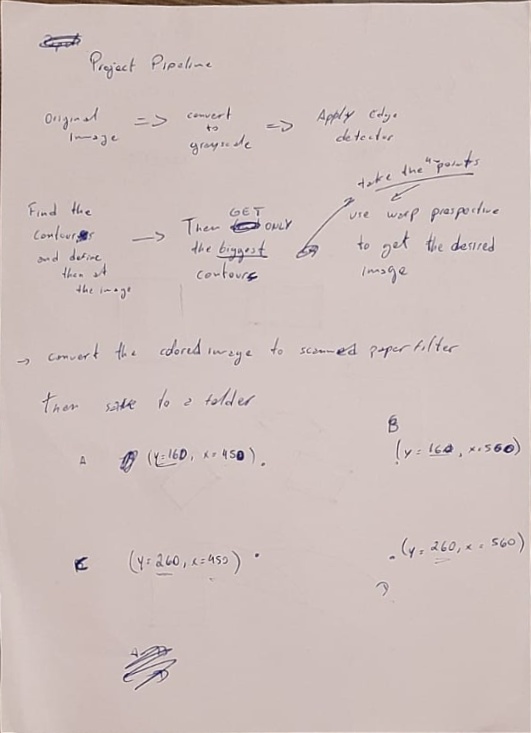 Project Pipeline
Original
image
=>
convert
to
grayscale
=>
Apply Edge
detector
Find the
contours
and define
them at
the image
Then GET ONLY
the biggest
contours
take the 4 points
use warp prespective
to get the desired
image
convert the colored image to scanned paper filter
Then save to a folder
A (y=160, x=450)
B
(y=160, x=560)
C (y=260, x=450)
(y=260, x=560)